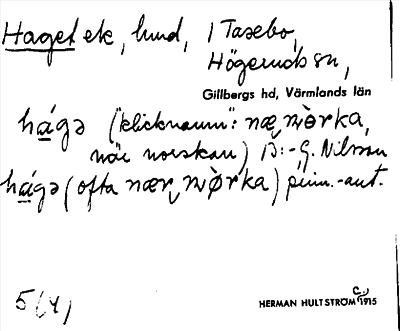 Haget etc, lund, i Tasebo,
Högeruds sn,
Gillbergs hd, Värmlands län
hágə ("klicknamn": næ
när norskan) B:-G. Nilsson
hágə (ofta nær
5(4)
HERMAN HULTSTRÖM C:a 1915